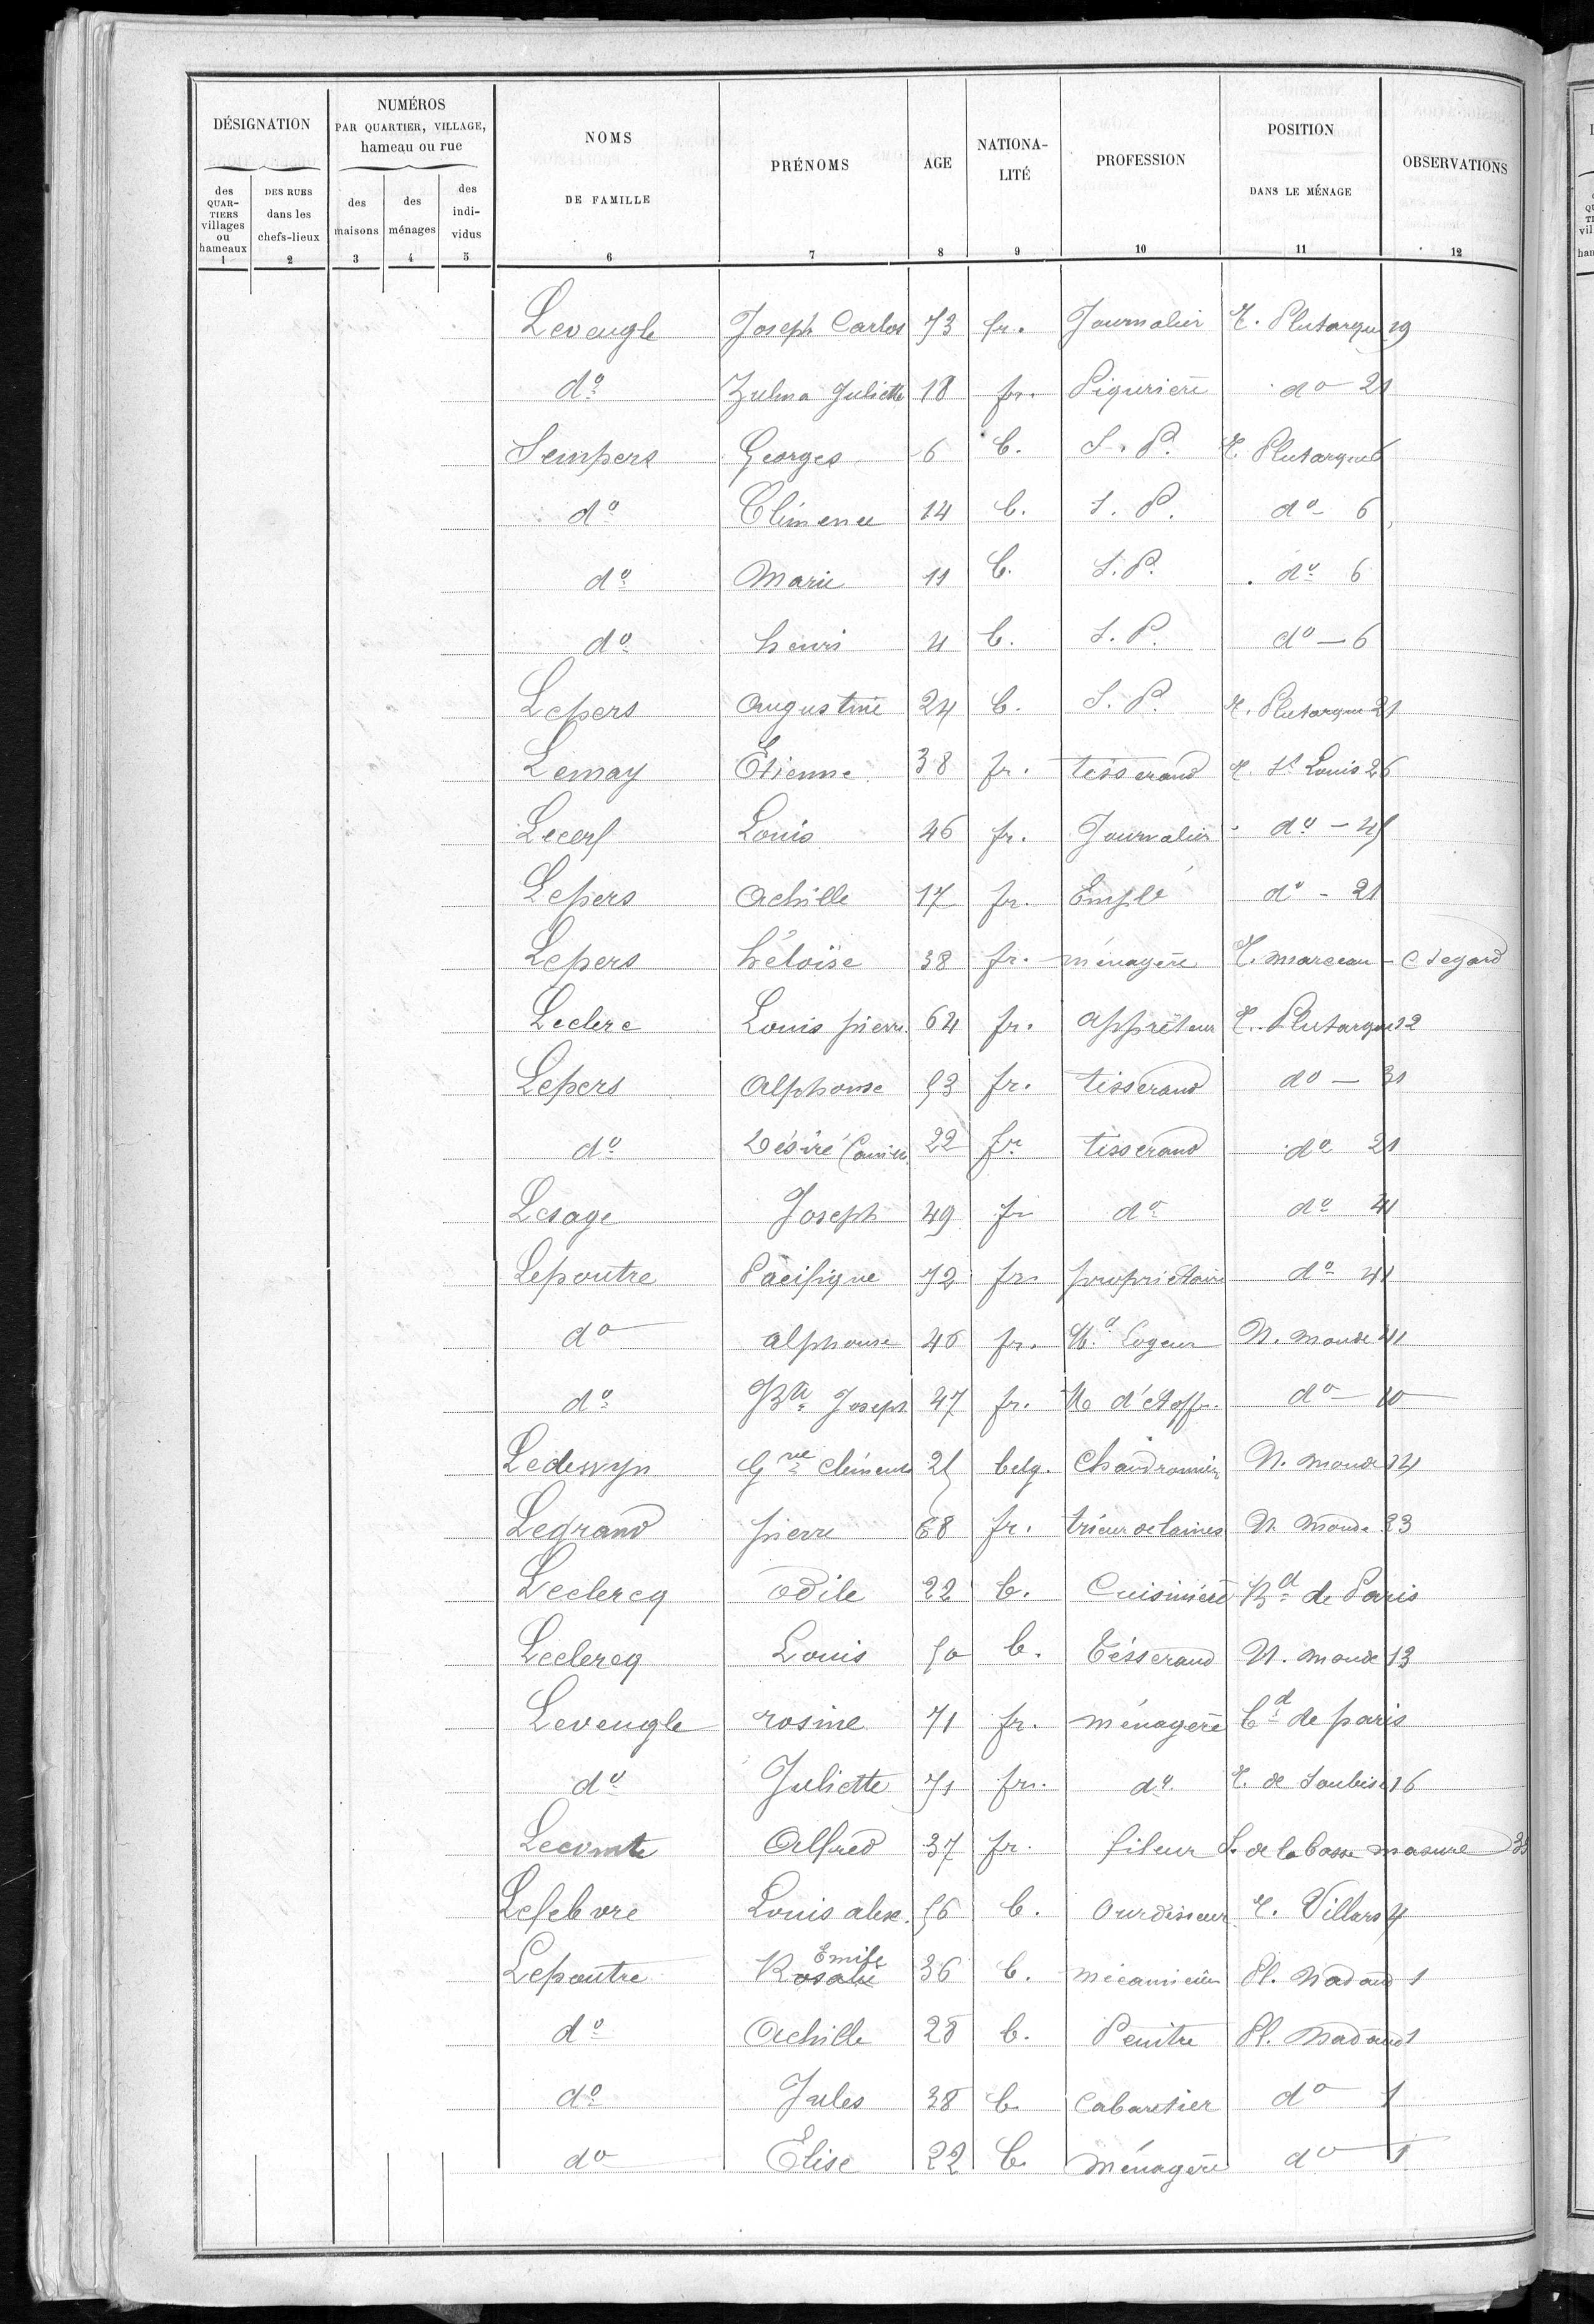 DÉSIGNATION NUMÉROS PAR QUARTIER, VILLAGE, hameau ou rue NOMS DE FAMILLE PRÉNOMS AGE NATIONA-LITÉ PROFESSION POSITION DANS LE MÉNAGE OBSERVATIONS
des QUAR-TIERS villages ou hameaux DES RUES dans les chefs-lieux des maisons des ménages des indi-vidus
1 2 3 4 5 6 7 8 9 10 11 12
Leveugle Joseph Carlos 73 fr. Journalier r. Plutarque 19
do Zulma Juliette 18 fr. Piqurière do 21
Sempers Georges 6 b. S. P. r. Plutarque 6
do Clémence 14 b. S. P. do 6
do Marie 11 b. S. P. do 6
do henri 4 b. S. P. do - 6
Lepers Augustine 24 b. S. P. r. Plutarque 21
Lemay Etienne 38 fr. tisserand r. St Louis 26
Lecerf Louis 46 fr. Journalier do - 45
Lepers Achille 17 fr. Emplé do - 21
Lepers héloïse 38 fr. ménagère r. marceau - C Segard
Leclerc Louis pierre 64 fr. appréteur r. Plutarque 12
Lepers Alphonse 53 fr. tisserand do - 31
do Désiré Camille 22 fr tisserand do 21
Lesage Joseph 49 fr do do 41
Lepoutre Pacifique 72 fr. propriétaire do 41
do alphonse 46 fr. Md Logeur N. monde 41
do Bte Joseph 47 fr. M d'étoffe do 10
Ledewyn Gve Clément 25 belg. Chaudronnier N. monde 14
Legrand pierre 68 fr. trieur de laines N. Monde 23
Leclercq odile 22 b. Cuisinière Bd de Paris
Leclercq Louis 50 b. Tésserand N. monde 13
Leveugle rosine 71 fr. ménagère bd de paris
do Juliette 71 fr. do r. de Soubise 16
Lecomte Alfred 37 fr. fileur S. de la basse masure 35
Lefebvre Louis alex. 56 b. Ourdisseur r. Villars 4
Lepoutre Rosalie Emile 36 b. mécanicien Pl. Nadaud 1
do Achille 28 b. Peintre Pl. Nadaud 1
do Jules 38 b. Cabaretier do 1
do Elise 22 b. ménagère do 1